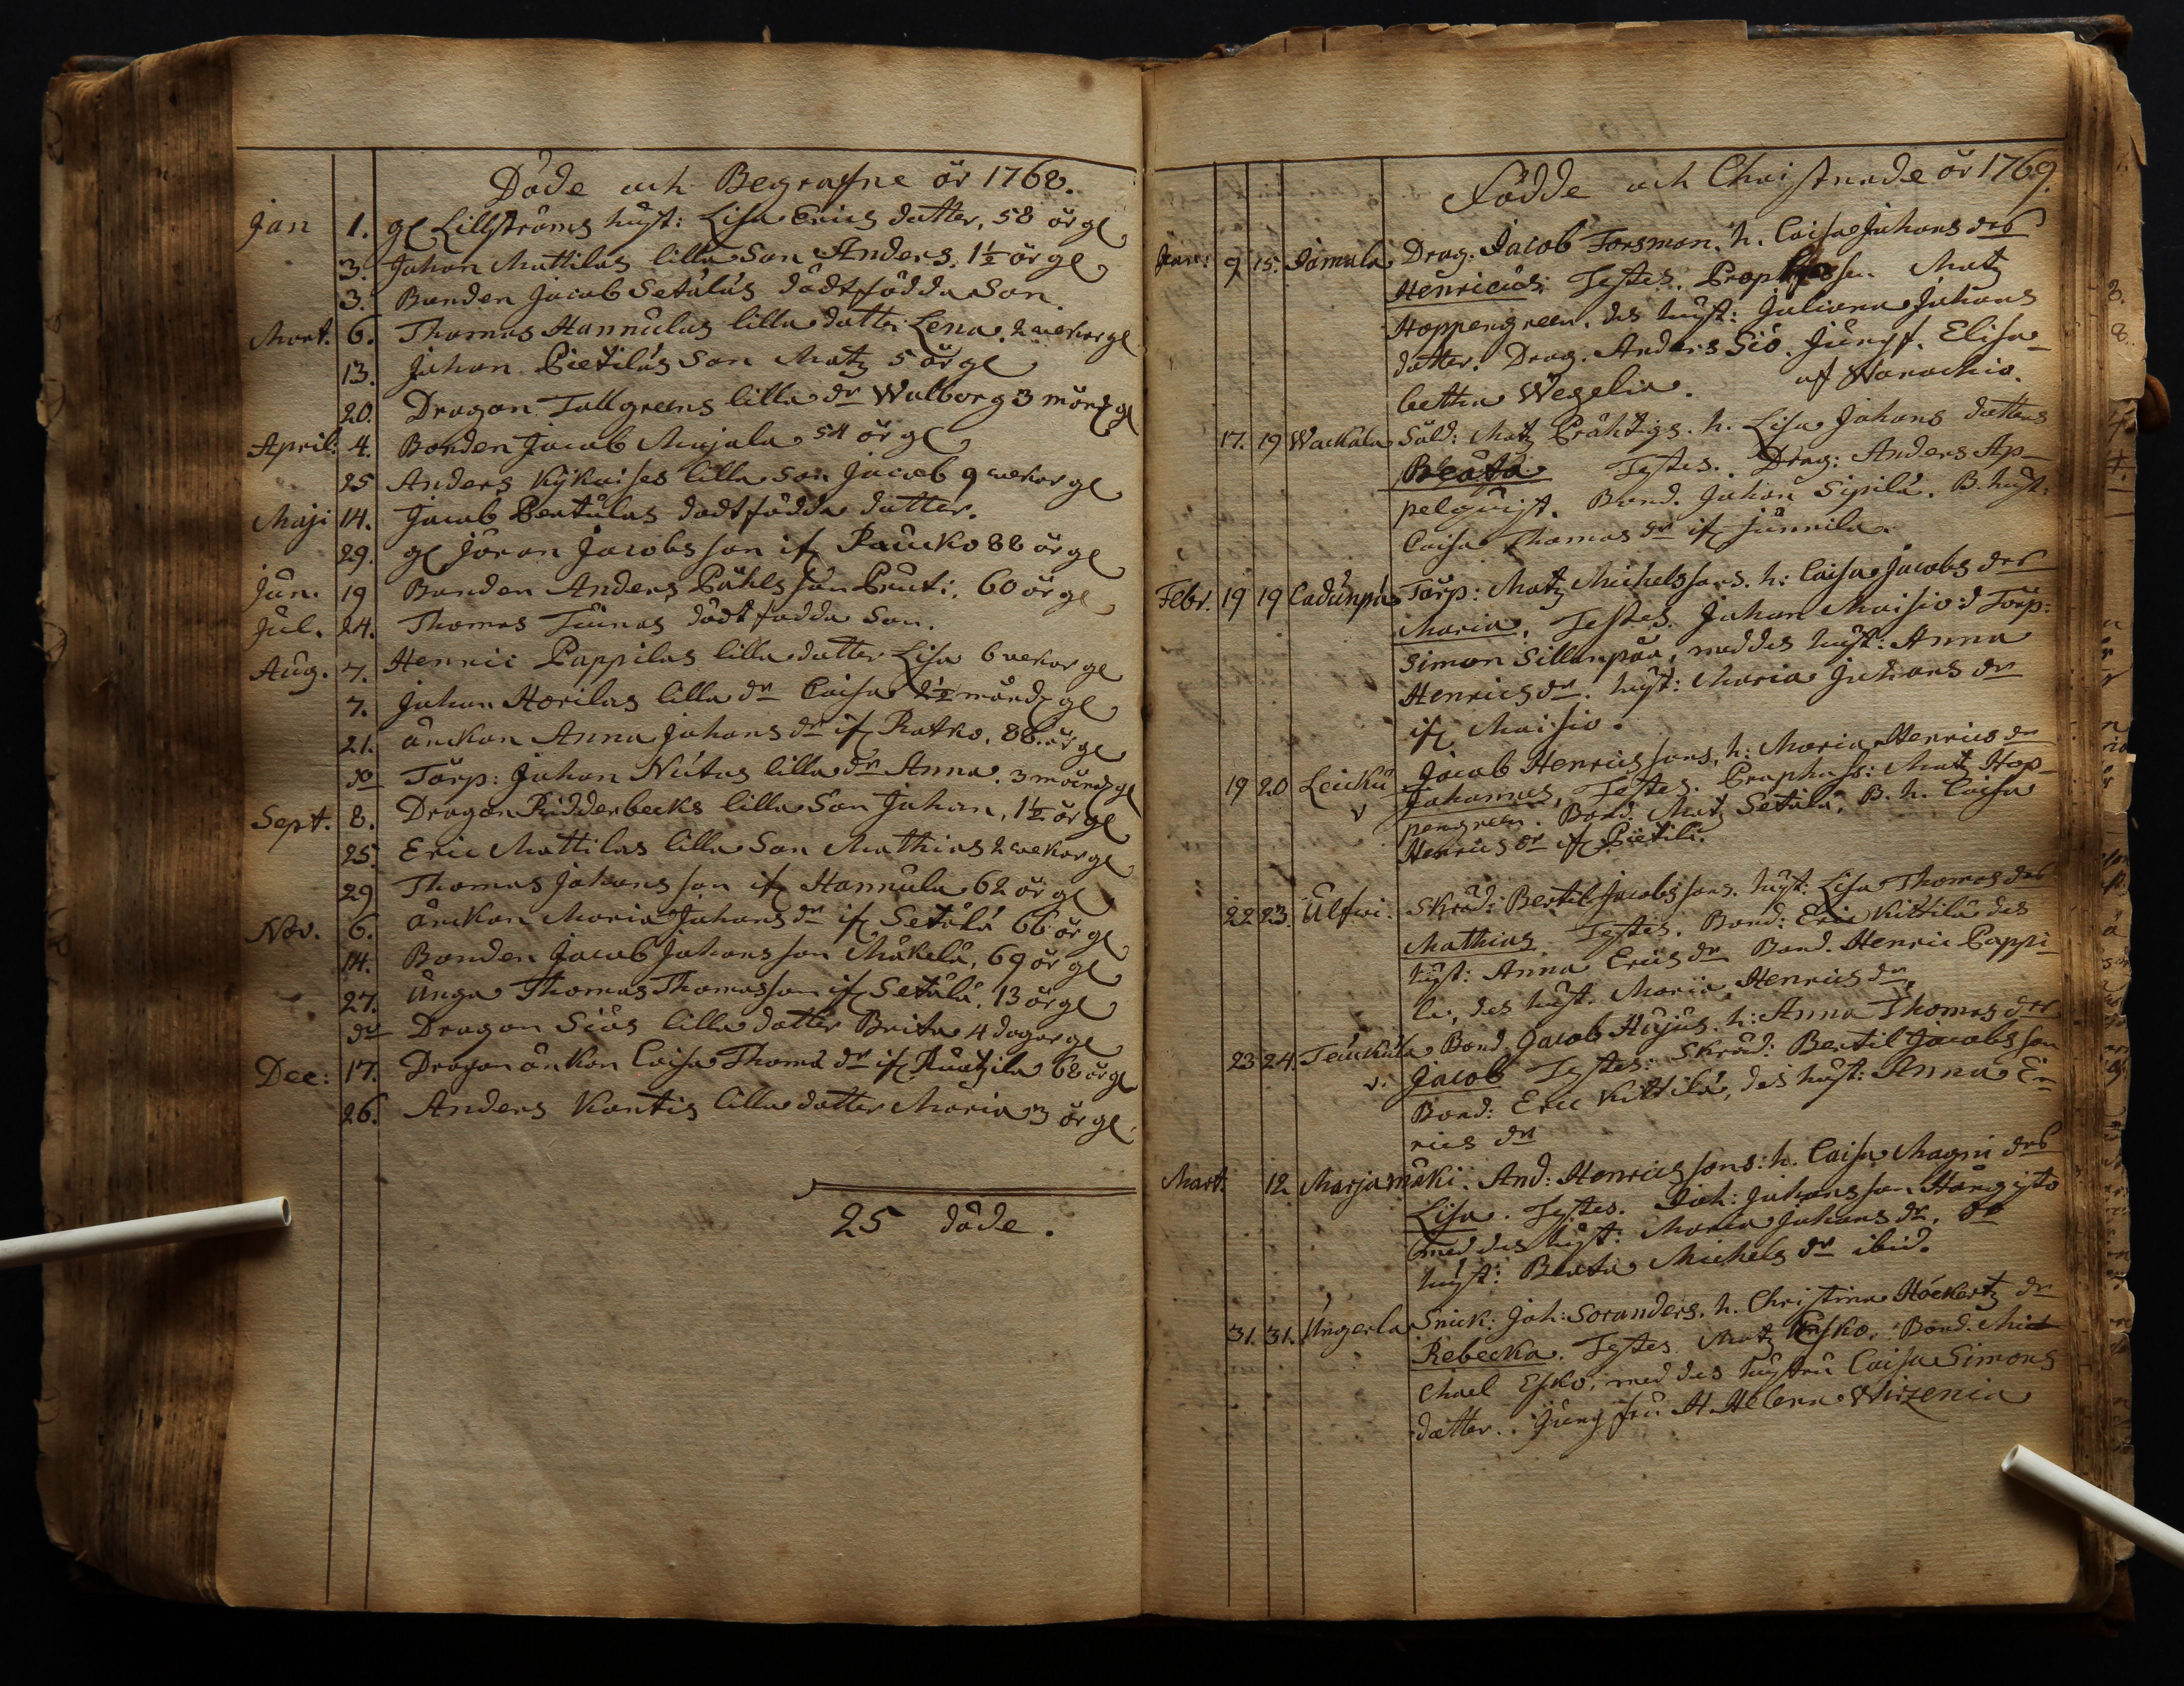 Döde och Begrafne år 1768.
Jan 1. gl Lillströms hust: Lisa Erics dotter, 58 år gl
3. Johan Mattilas lilla Son Anders, 1½ år gl
3. Bonden Jacob Setäläs dödtfödda Son.
Mart. 6. Thomas Hannulas lilla dotter Lena. 2 wekor gl
13. Johan Pietiläs Son Matz 5 år gl
20. Dragon Tallgreens lilla dr Walborg 3 mån: gl
April. 4. Bonden Jacob Majala 54 år gl
25 Anders Kykaises lilla Son Jacob 9 wekor gl
Maji 14. Jacob Pentulas dödtfödda dotter.
29. gl Jöran Jacobsson if Raucko 88 år gl
Jun. 19 Bonden Anders Påhlsson Prut: 60 år gl
Jul. 24. Thomas Tuinas dödtfödda Son.
Aug. 7. Henric Pappilas lilla dotter Lisa 6 wekor gl
7. Johan Horilas lilla dr Caisa 2½ månd gl
21. änckan Anna Johans dr if Ratko, 88 år gl
do Torp: Johan Nutas lilla dr Anna. 3 månd gl
Sept. 8. Dragon Ridderbecks lilla Son Johan, 1½ år gl
25. Eric Mattilas lilla Son Mathias 2 wekor gl
29 Thomas Johansson if Hannula 62 år gl
Nov. 6. änckan Maria Johans dr if Setälä 66 år gl
14. Bonden Jacob Johansson Mäkelä, 69 år gl
27. Unga Thomas Thomasson if Setälä. 13 år gl
do Dragon Siös lilla dotter Brita 4 dagar gl
Dec: 17. Dragon änkan Caisa Thoma dr if Ruatzila 68 år gl
26. Anders Kantis lilla dotter Maria 3 år gl.
25 döde.
Födde och Christnade år 1769.
Janu: 9 15. Jamala Drag. Jacob Forsman. h. Caisa Johans drs
Henricus. Testes. Matz
Hoppengreen, des hust: Juliana Johans
dotter. Drag. Anders Siö. Jungf. Elisa-
betha Wegelia. af Warachia.
17. 19 Wackala Sold: Matz Prähtigs. h. Lisa Johans dotters
Beata Testes. Drag: Anders Ap-
pelquist. Bond. Johan Sipilä. B. hust:
Caisa Thomas dr if Junnila.
Febr. 19 19 Cadunpä Torp: Matz Michelssons. h: Caisa Jacobs drs
Maria, Testes. Johan Maisio: d Torp:
Simon Sillanpää, med des hust: Anna
Henrics dr. hust: Maria Johans dr
if Maisio.
19 20 Leicku Jacob Henricssons, h: Maria Henrics dr
v Johannes, Testes. Prophess: Matz Hop-
pengreen. Bond. Matz Setälä, B. h. Caisa
Henrics dr if Pietilä.
22 23. Ulfwi. Skräd: Bertil Jacobssons. hust: Lisa Thomas drs
Mathias Testes. Bond: Eric Kittilä des
hust: Anna Erics dr Bond. Henric Pappi-
la, des hust. Maria Henrics dr,
23 24. Teuckula Bond. Jacob Hujus. h: Anna Thomas drs
v. Jacob Testes: Skräd: Bertil Jacobsson
Bond: Eric Kittilä, des hust: Anna E-
rics dr
Mart. 12 Marjamäki. And: Henricssons: h. Caisa Magni drs
Lisa. Testes. Joh: Johansson
med des hust: Maria Johans dr. do
hust: Beata Michels dr ibid.
31. 31. Ungerla Snick: Joh: Soranders. h. Christina Höckertz dr
Rebecka. Testes. Matz Bond. Mi-
chael Esko, med des hustru Caisa Simons
dotter. Jungfru H. Helena Wirzenia